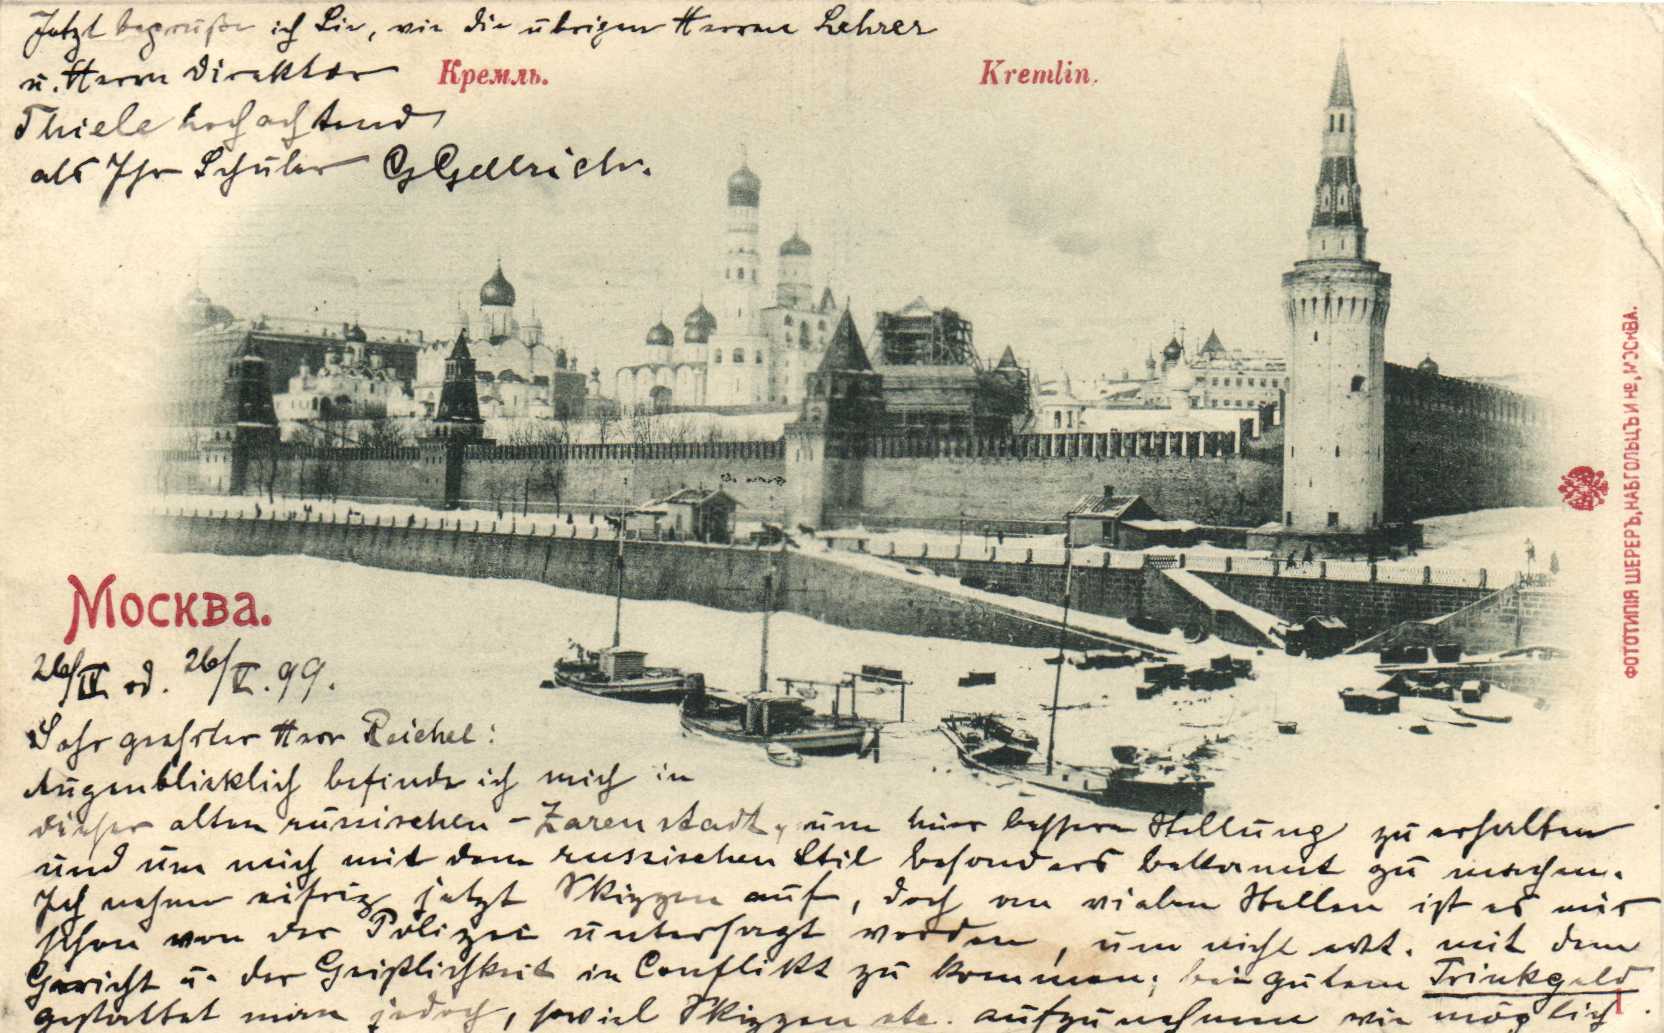 Jetzt begrüße ich Sie, wie die übrigen Herren Lehrer
u. Herrn Direktor
Thiele hochachtend
als Ihr Schüler G Gellrich.
Кремль.
Kremlin.
Москва.
26/IV od. 26/V. 99.
Sehr geehrter Herr Reichel:
Augenblicklich befinde ich mich in
dieser alten russischen - Zarenstadt, um hier bessere Stellung zu erhalten
und um mich mit dem russischen Stil besonders bekannt zu machen.
Ich nehme eifrig jetzt Skizzen auf, doch an vielen Stellen ist es mir
schon von der Polizei untersagt worden, um nicht evt. mit dem
Gericht u. der Geistlichkeit in Conflikt zu kommen; bei gutem Trinkgeld
gestattet man jedoch, soviel Skizzen etc. aufzunehmen wie möglich!
ФОТОТИПІЯ ШЕРЕРЪ, НАБГОЛЬЦЪ И Кº, МОСКВА.